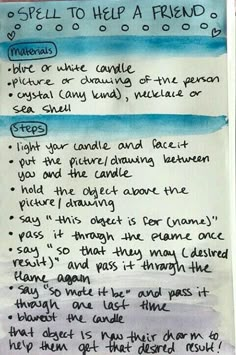 SPELL TO HELP A FRIEND
materials
• blue or white candle
• picture or drawing of the person
• crystal (any kind), necklace or
sea shell
Steps
• light your candle and face it
• put the picture/drawing between
you and the candle
• hold the object above the
picture/drawing
• say "this object is for (name)"
• pass it through the flame once
• say "so that they may (desired
result)" and pass it through the
flame again
• say "so mote it be" and pass it
through one last time
• blow out the candle
that object is now their charm to
help them get that desired result!